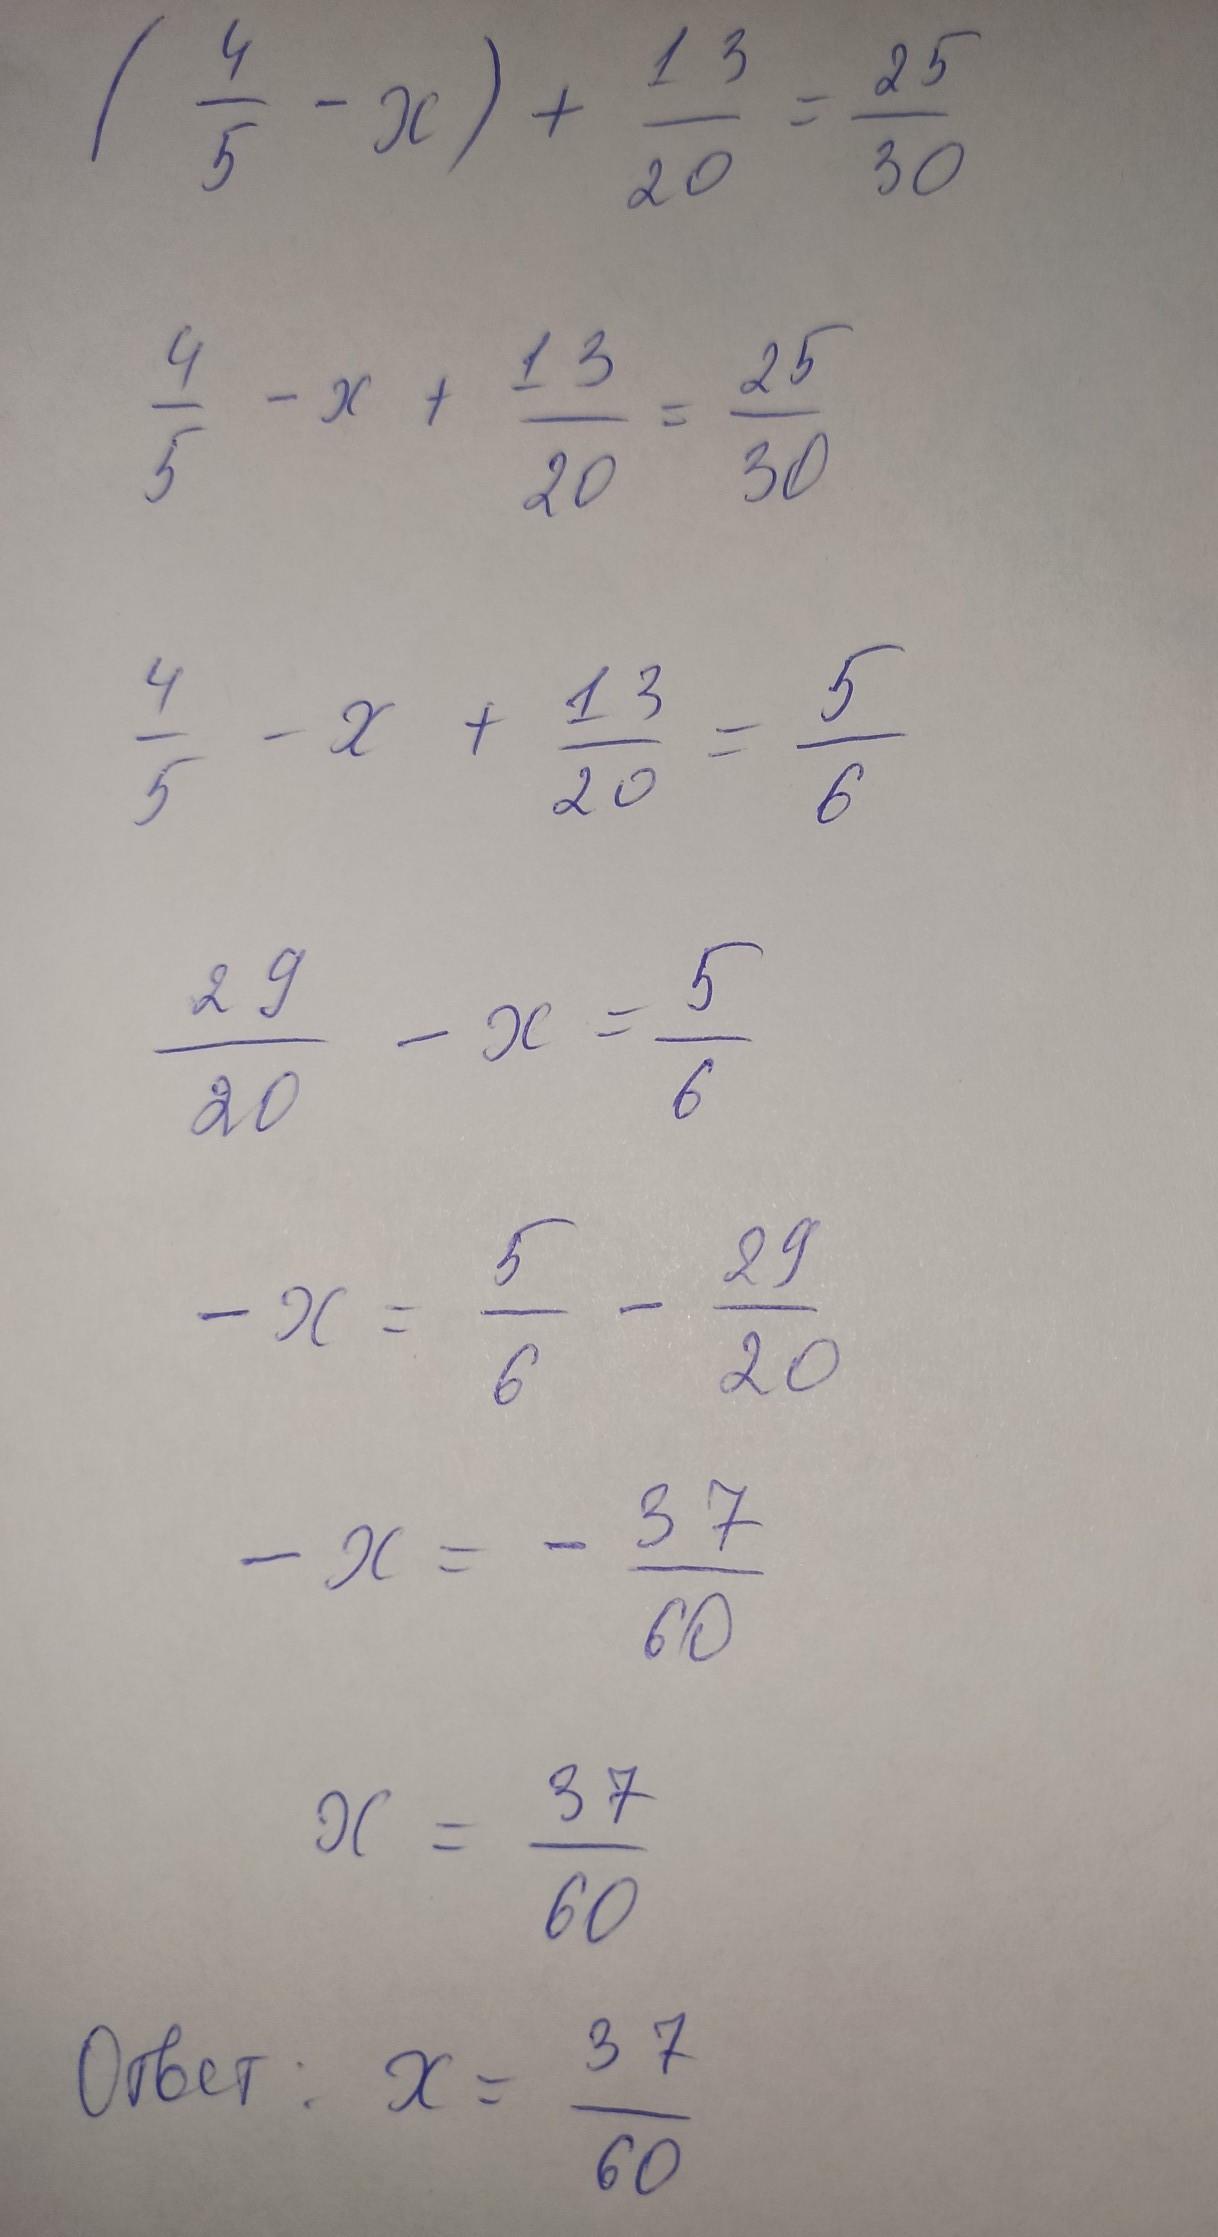 (4/5 - x) + 13/20 = 25/30
4/5 - x + 13/20 = 25/30
4/5 - x + 13/20 = 5/6
29/20 - x = 5/6
- x = 5/6 - 29/20
- x = - 37/60
x = 37/60
Ответ: x = 37/60